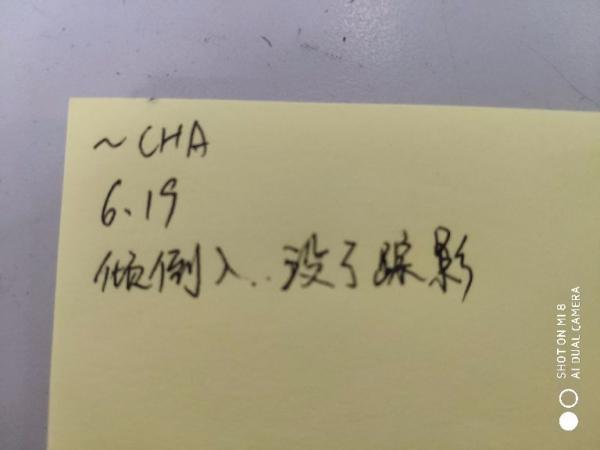 ~CHA
6.19
倾倒入..没了踪影
SHOT ON MI 8
AI DUAL CAMERA